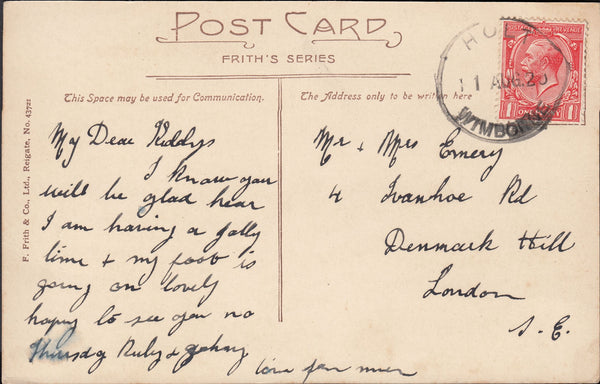 POST CARD
FRITH'S SERIES
This Space may be used for Communication.
The Address only to be written here
F. Frith & Co., Ltd., Reigate, No. 43721
My Dear Kiddys
I know you
will be glad hear
I am having a jolly
time & my foot is
going on lovely
hopeing to see you no
Thursday Ruby &
love from
Mr & Mrs Emery
4 Ivanhoe Rd
Denmark Hill
London
S. E.
HOLT
11 AUG.20
WIMBORNE
POSTAGE REVENUE
1 ONE PENNY 1